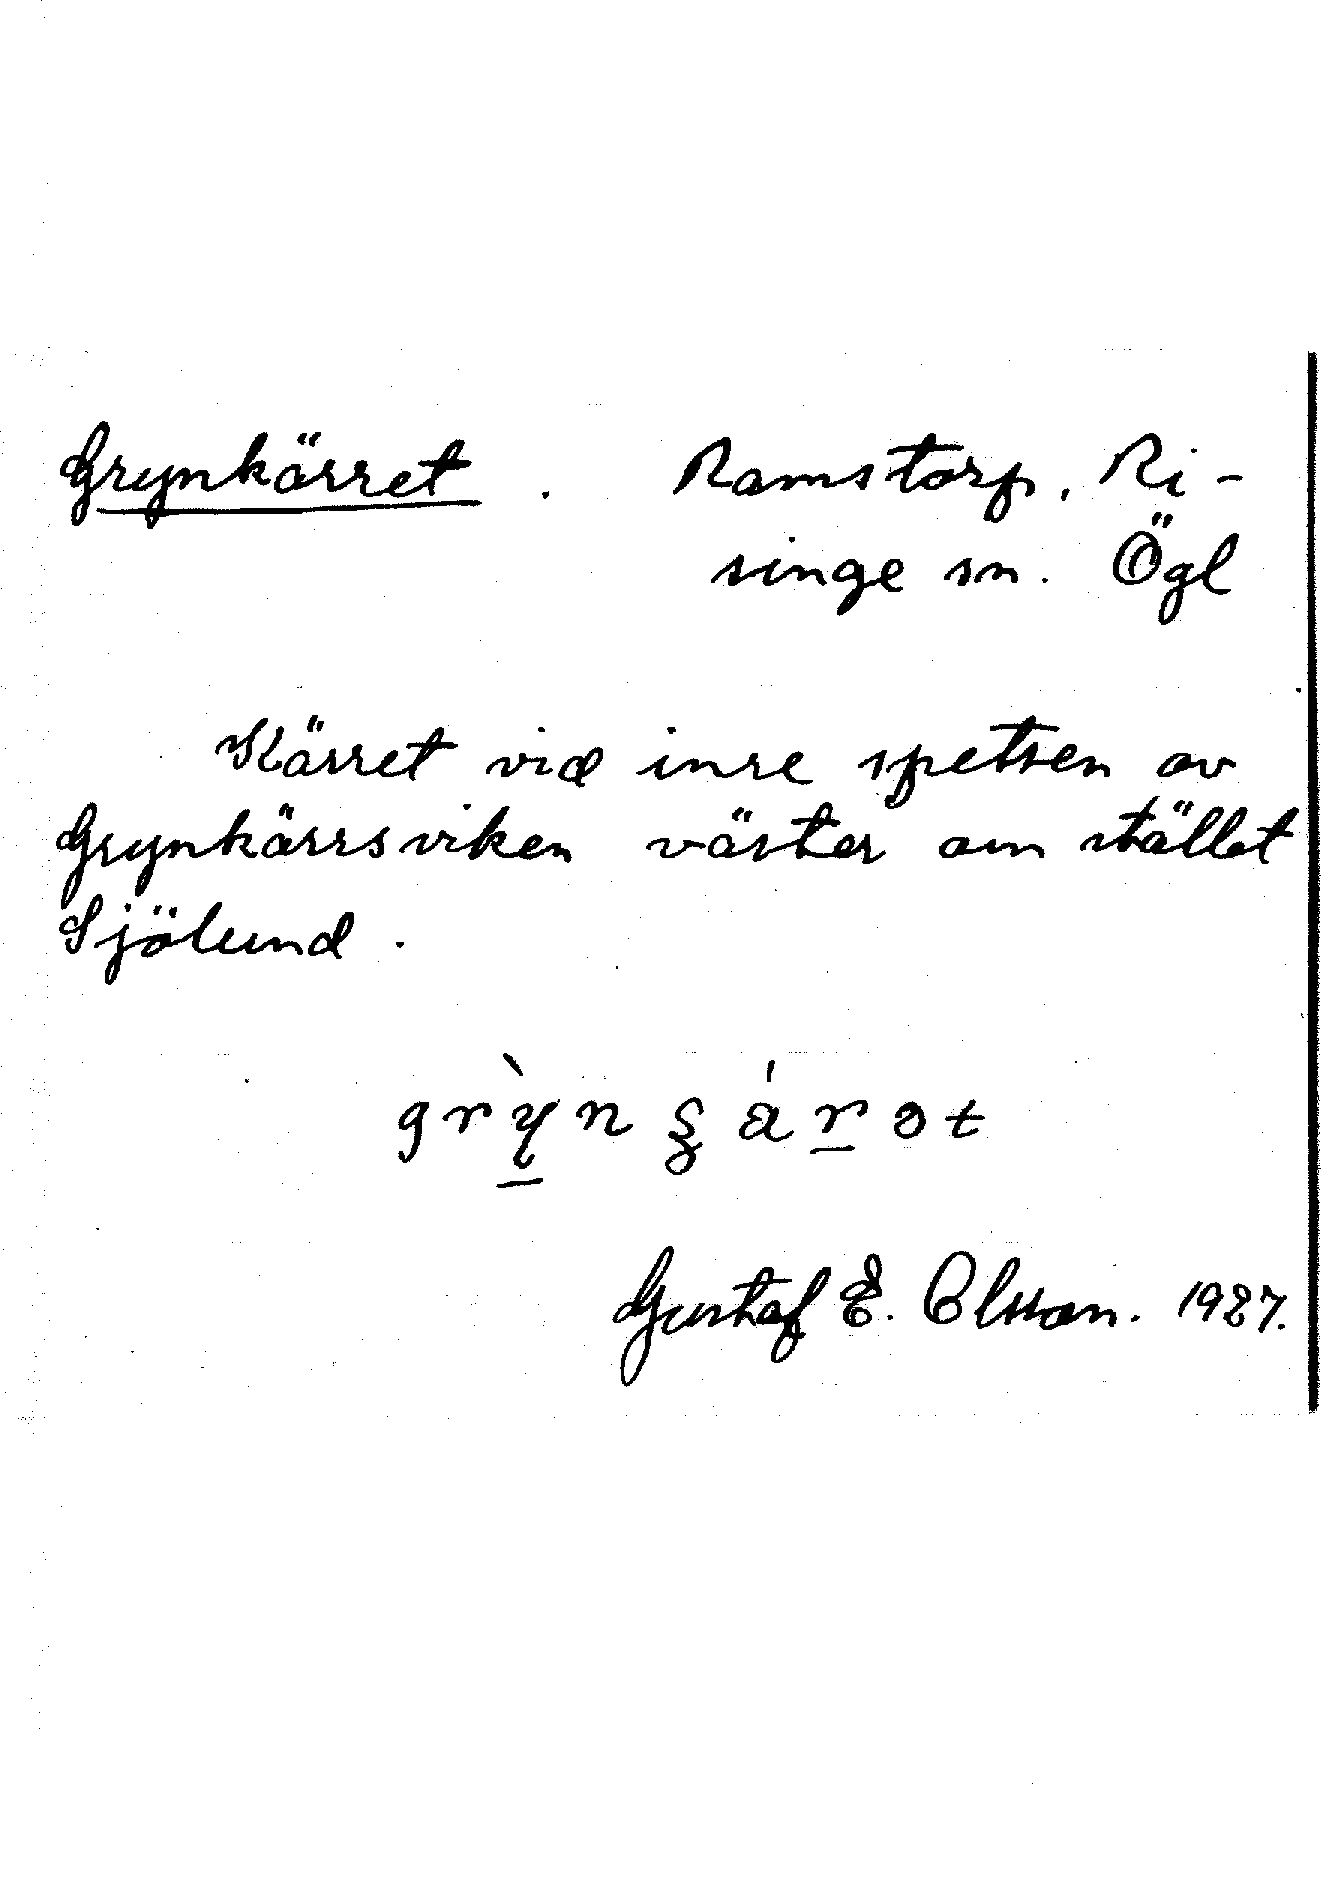 Grynkärret. Ramstorp, Ri-
singe sn. Ögl
Kärret vid inre spetsen av
Grynkärrsviken väster om stället
Sjölund.
Gustaf E. Olsson. 1927.